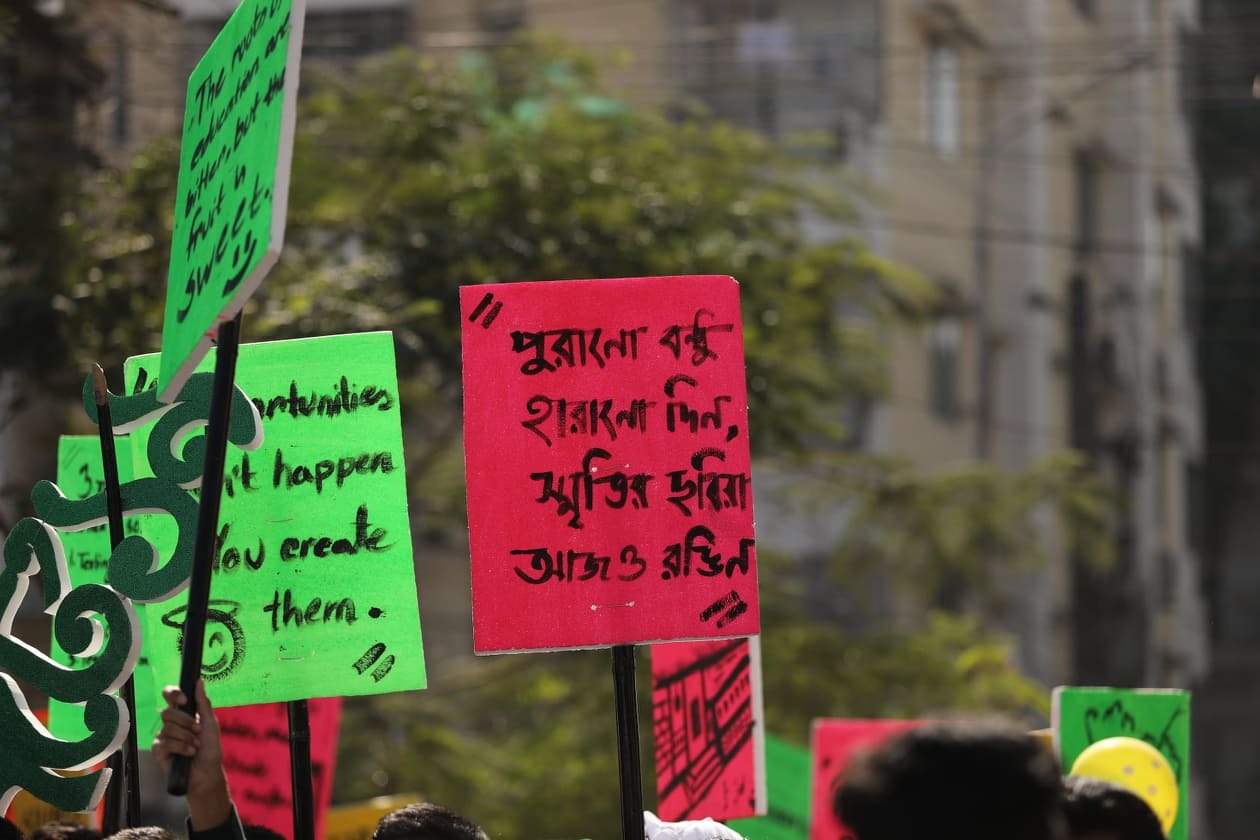 The roots of
education are
bitter, but the
fruit is
sweet.
ortunities
n't happen
You create
them.
"পুরানো বন্ধু
হারানো দিন,
স্মৃতির ছবিরা
আজও রঙিন"